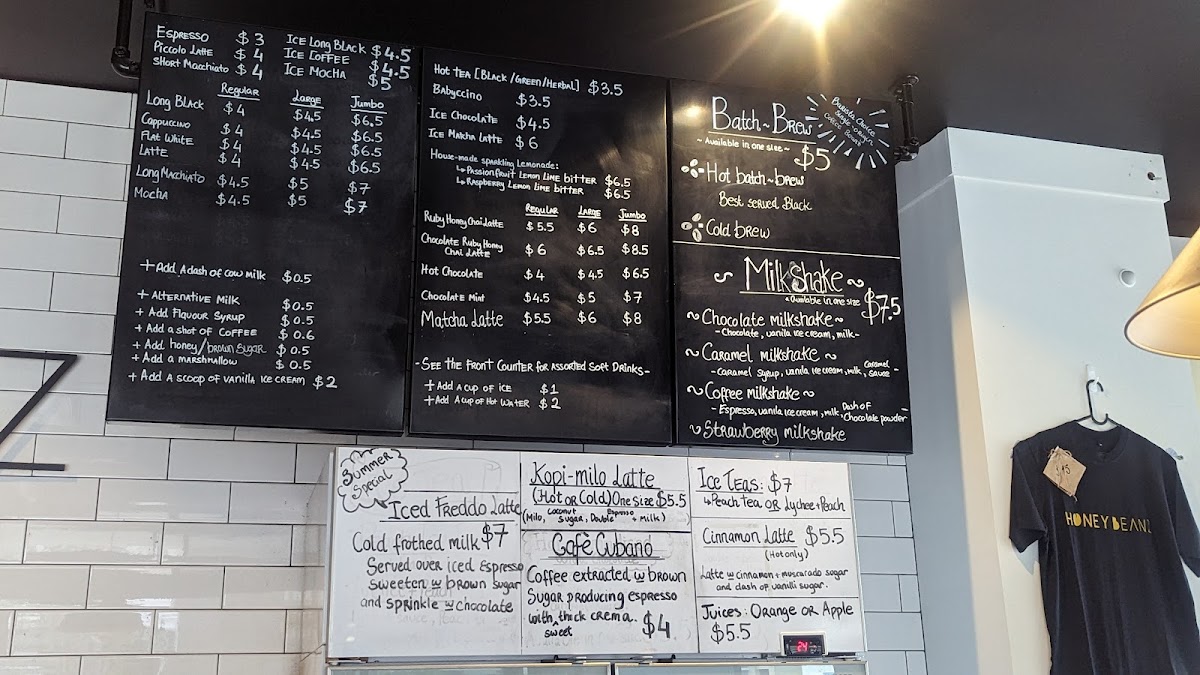 Espresso $3
Piccolo Latte $4
Short Macchiato $4
Ice Long Black $4.5
Ice Coffee $4.5
Ice Mocha $5
Regular Large Jumbo
Long Black $4 $4.5 $6.5
Cappuccino $4 $4.5 $6.5
Flat White $4 $4.5 $6.5
Latte $4 $4.5 $6.5
Long Macchiato $4.5 $5 $7
Mocha $4.5 $5 $7
+ Add a dash of cow milk $0.5
+ Alternative Milk $0.5
+ Add Flavour Syrup $0.5
+ Add a shot of coffee $0.6
+ Add honey/brown sugar $0.5
+ Add a marshmallow $0.5
+ Add a scoop of vanilla ice cream $2
Hot Tea [Black/Green/Herbal] $3.5
Babyccino $3.5
Ice Chocolate $4.5
Ice Matcha Latte $6
House-made sparkling Lemonade:
↳ Passionfruit Lemon Lime bitter $6.5
↳ Raspberry Lemon Lime bitter $6.5
Regular Large Jumbo
Ruby Honey Chai Latte $5.5 $6 $8
Chocolate Ruby Honey
Chai Latte $6 $6.5 $8.5
Hot Chocolate $4 $4.5 $6.5
Chocolate Mint $4.5 $5 $7
Matcha Latte $5.5 $6 $8
-See the Front Counter for Assorted Soft Drinks-
+ Add a cup of ice $1
+ Add a cup of Hot Water $2
Batch~Brew
~ Available in one size ~ $5
Barista Choice
Single origin
Hot batch~brew
Best served Black
Cold brew
~ Milkshake ~
*available in one size $7.5
~ Chocolate milkshake ~
- Chocolate, vanila ice cream, milk -
~ Caramel milkshake ~
- Caramel syrup, vanila ice cream, milk, Caramel sauce -
~ Coffee milkshake ~
- Espresso, vanila ice cream, milk, Dash of Chocolate powder -
~ Strawberry milkshake
Summer
Special
Iced Freddo Latte
$7
Cold frothed milk
Served over iced Espresso
Sweeten w brown sugar
and sprinkle w chocolate
Kopi-milo Latte
(Hot or Cold) One Size $5.5
(Milo, Coconut Sugar, Double Espresso + Milk)
Cafè Cubano
Coffee extracted w brown
Sugar producing espresso
with sweet thick crema. $4
Ice Teas: $7
↳ Peach Tea or Lychee + Peach
Cinnamon Latte $5.5
(Hot only)
Latte w cinnamon + muscarado sugar
and dash of vanilli sugar.
Juices: Orange or Apple
$5.5
24
HONEY BEANZ